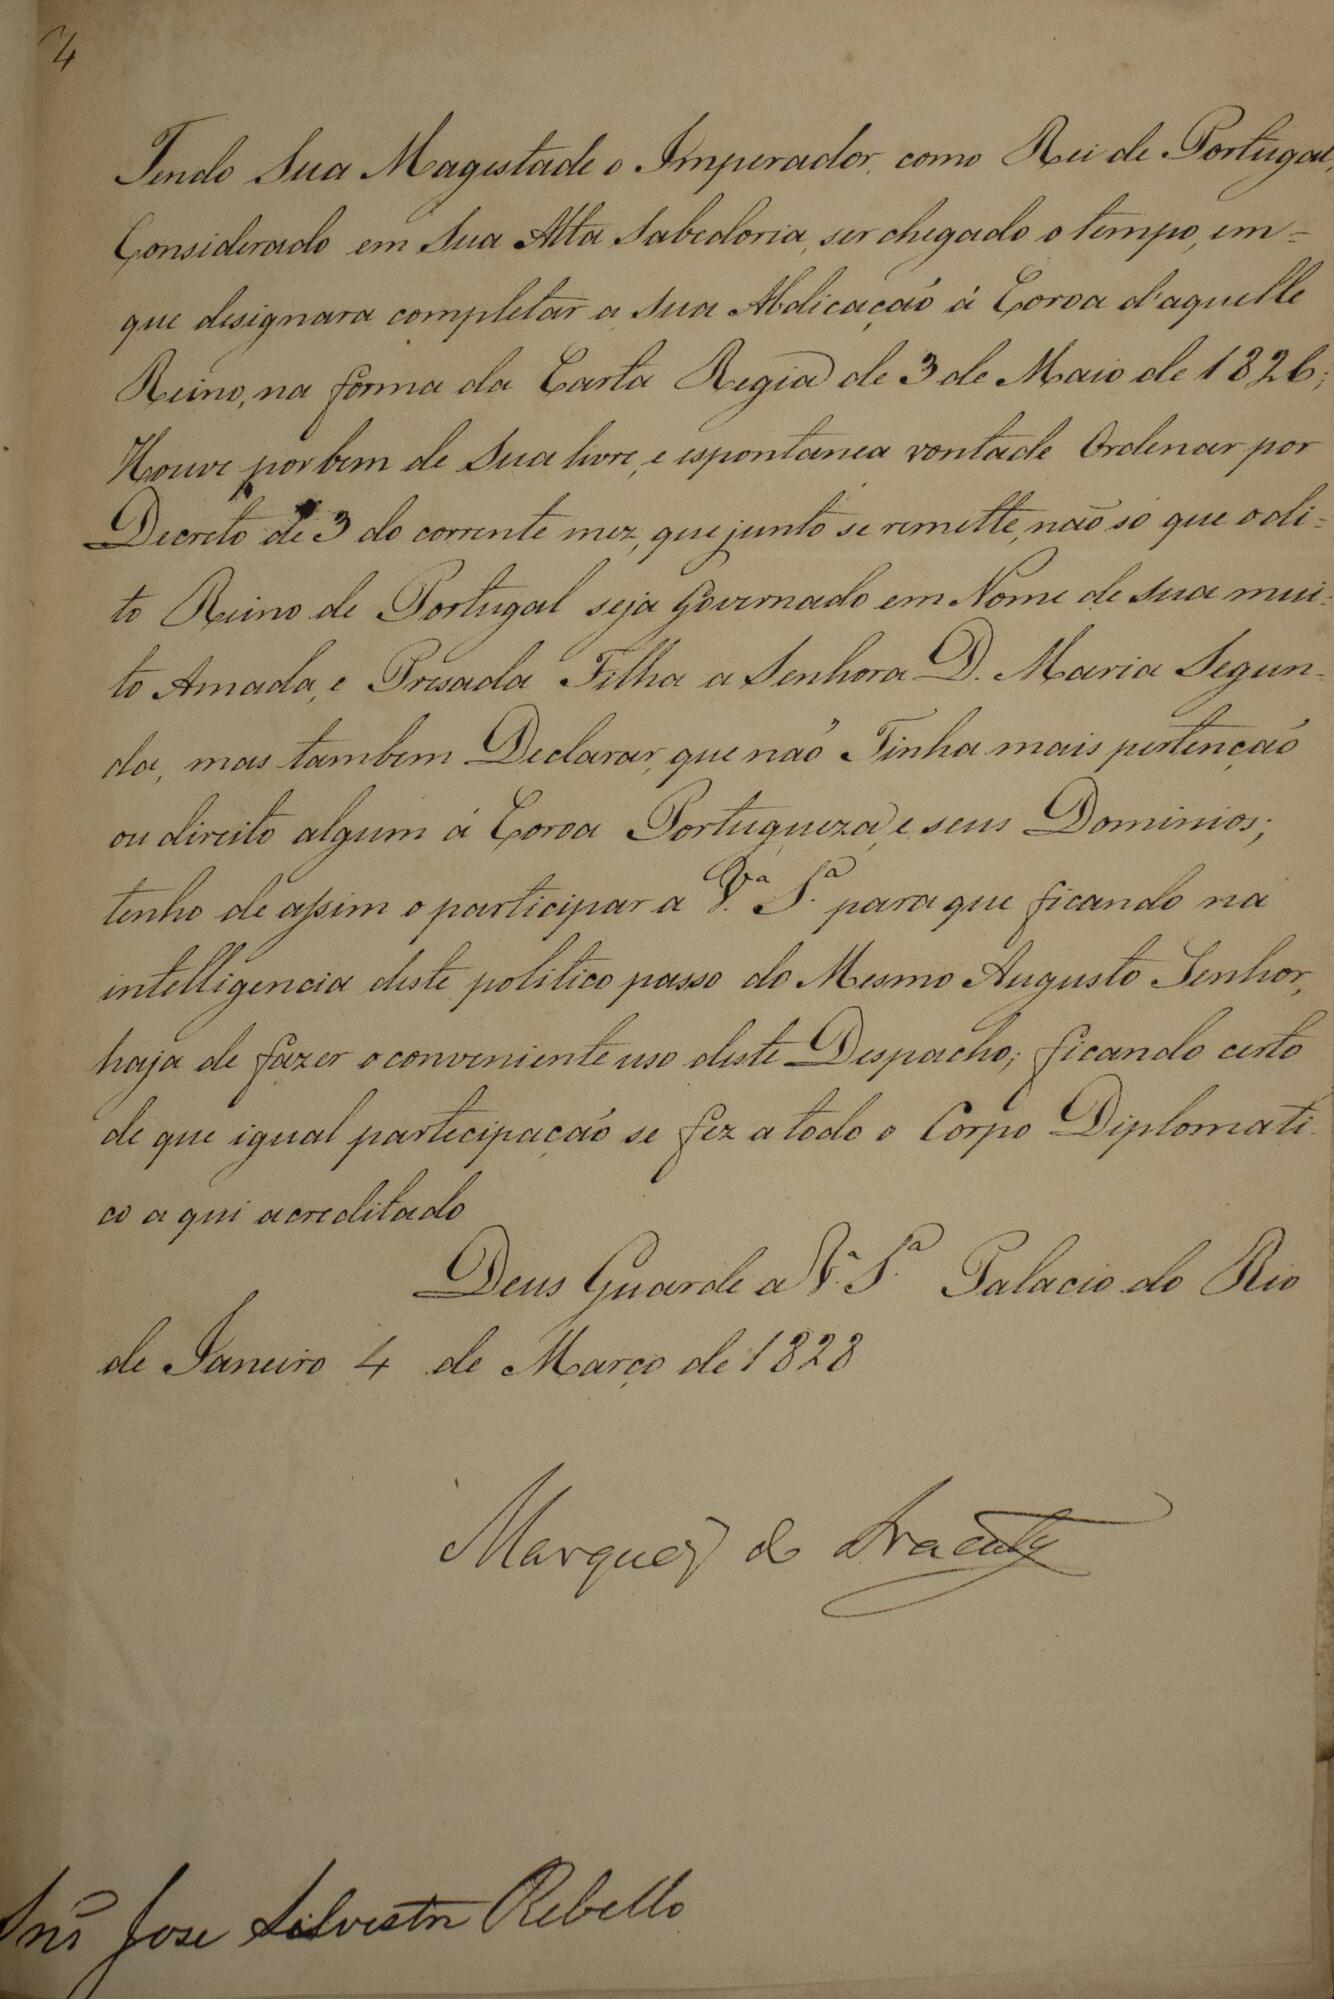 4
Tendo Sua Magestade o Imperador, como Rei de Portugal,
Considerado em Sua Alta Sabedoria, ser chegado o tempo, em=
que designara completar a Sua Abdicação á Coroa d'aquelle
Reino, na forma da Carta Regia de 3 de Maio de 1826;
Houve por bem de Sua livre, e espontanea vontade Ordenar por
Decreto de 3 do corrente mez, que junto se remette, não só que o di=
to Reino de Portugal seja Governado em Nome de Sua mui-
to Amada, e Presada Filha a Senhora D. Maria Segun-
da, mas tambem Declarar, que não Tinha mais pertenção
ou direito algum á Coroa Portugueza, e seus Dominios;
tenho de assim o participar a V.ª S.ª para que ficando na
intelligencia deste politico passo do Mesmo Augusto Senhor,
haja de fazer o conveniente uso deste Despacho; ficando certo
de que igual partecipação se fez a todo o Corpo Diplomati-
co aqui acreditado
Deus Guarde a V.ª S.ª Palacio do Rio
de Janeiro 4 de Março de 1828
Marquez de Aracaty
Snr Jose Silvestre Rebello